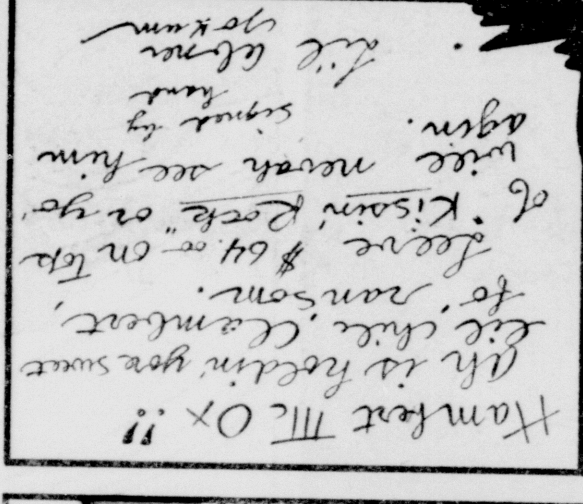 Hambert McOx!!
Ah is holdin' yore sweet
lil chile, Clambert,
fo' ransom.
Leeve $64.00 on top
of "Kissin' Rock" or yo'
will nevah see him
agin.
signed by
hand
Lil Abner
Yokum